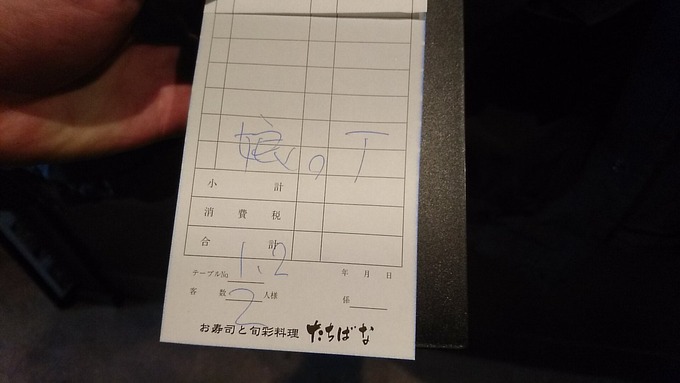 小計
消費税
合計
テーブルNo 1、2 年 月 日
客数 2 人様 係
お寿司と旬彩料理 たちばな